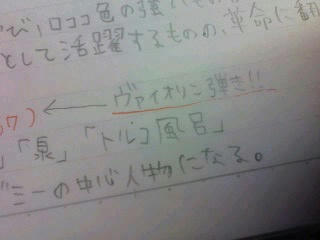 び」ロココ色の強い
として活躍するものの、革命に翻
7) ← ヴァイオリン弾き!!
」「泉」「トルコ風呂」
ミーの中心人物になる。